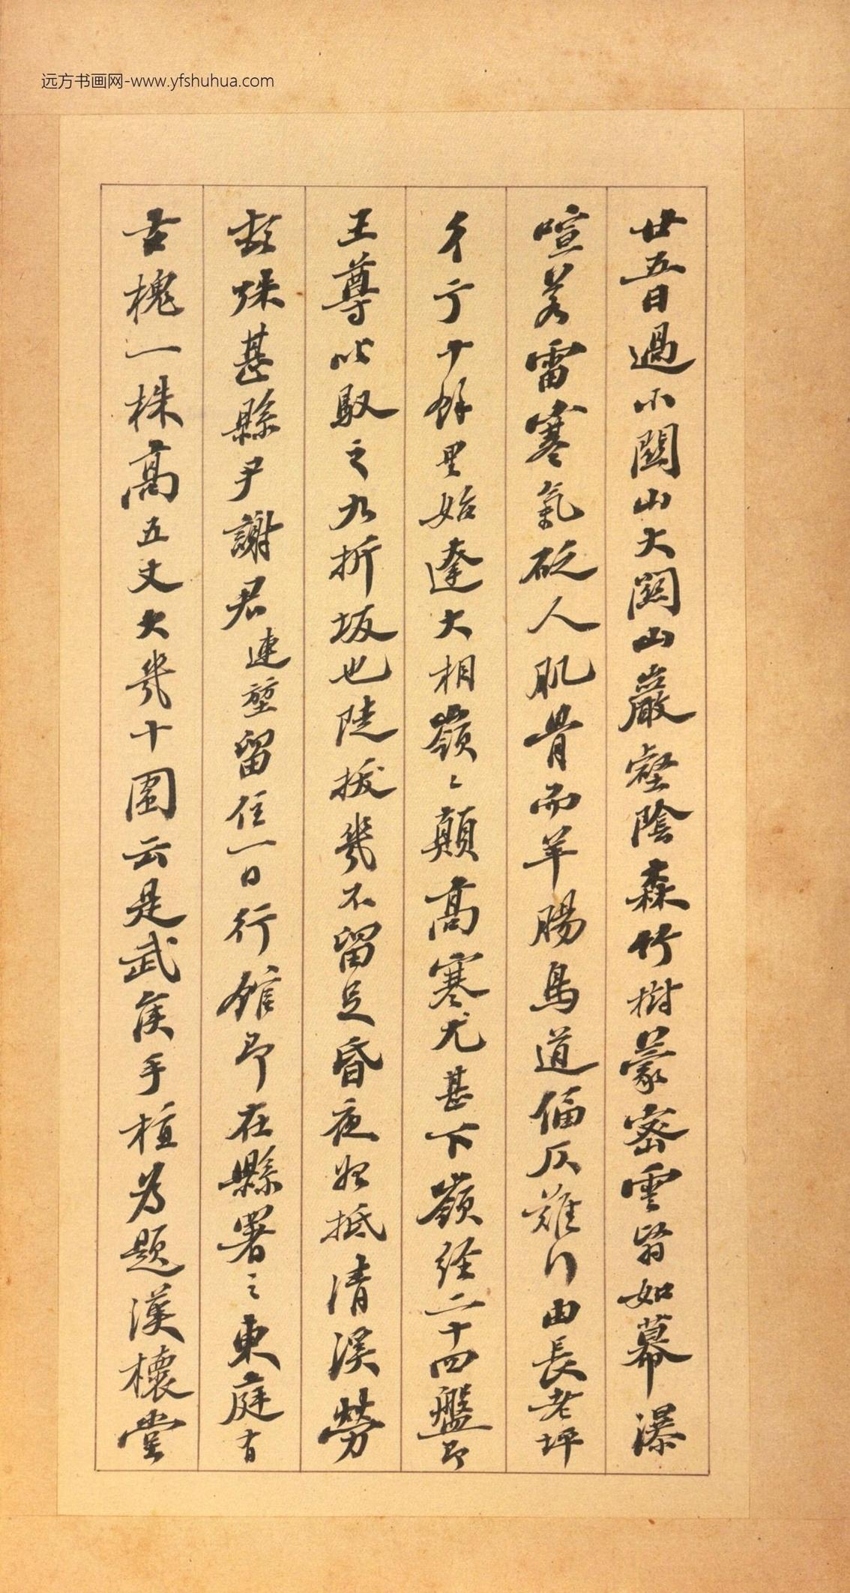 远方书画网-www.yfshuhua.com
廿五日過小關山大關山巖壑陰森竹樹蒙密雲翳如幕瀑
喧若雷寒氣砭人肌骨而羊腸鳥道偪仄難行由長老坪
彳亍十餘里始達大相嶺〻顛高寒尤甚下嶺經二十四盤即
王尊叱馭之九折坂也陡拔幾不留足昏夜始抵清溪勞
頓殊甚縣尹謝君連塈留住一日行館即在縣署之東庭有
古槐一株高五丈大幾十圍云是武侯手植為題漢櫰堂